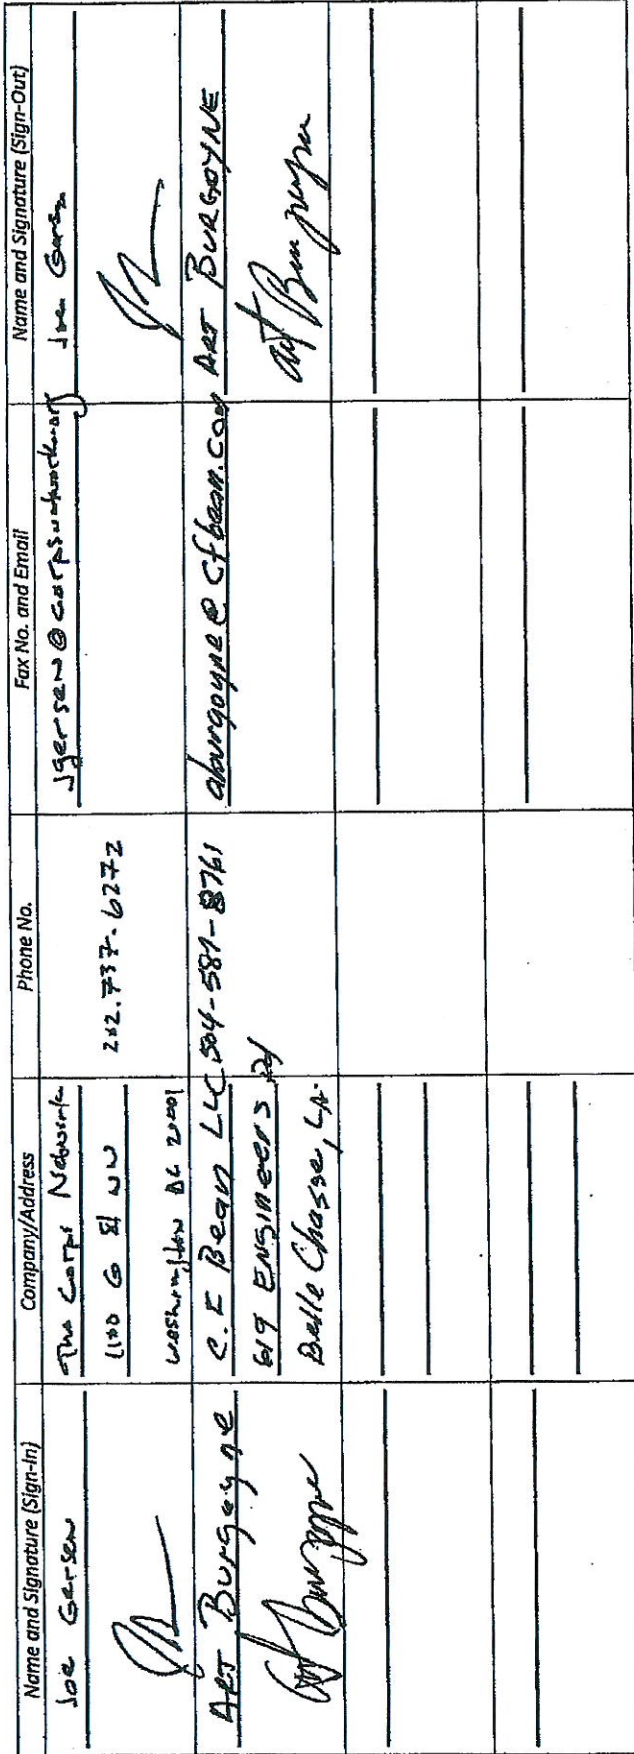 Name and Signature (Sign-In)
Company/Address
Phone No.
Fax No. and Email
Name and Signature (Sign-Out)
Joe Gersen
The Corps Network
1100 G St NW
Washington DC 20001
202.737.6272
jgersen@corpsnetwork.org
Joe Gersen
ART Burgoyne
C.F Bean LLC
619 Engineers Rd
Belle Chasse, LA.
504-587-8761
aburgoyne@cfbean.com
ART BURGOYNE
Art Burgoyne
Art Burgoyne